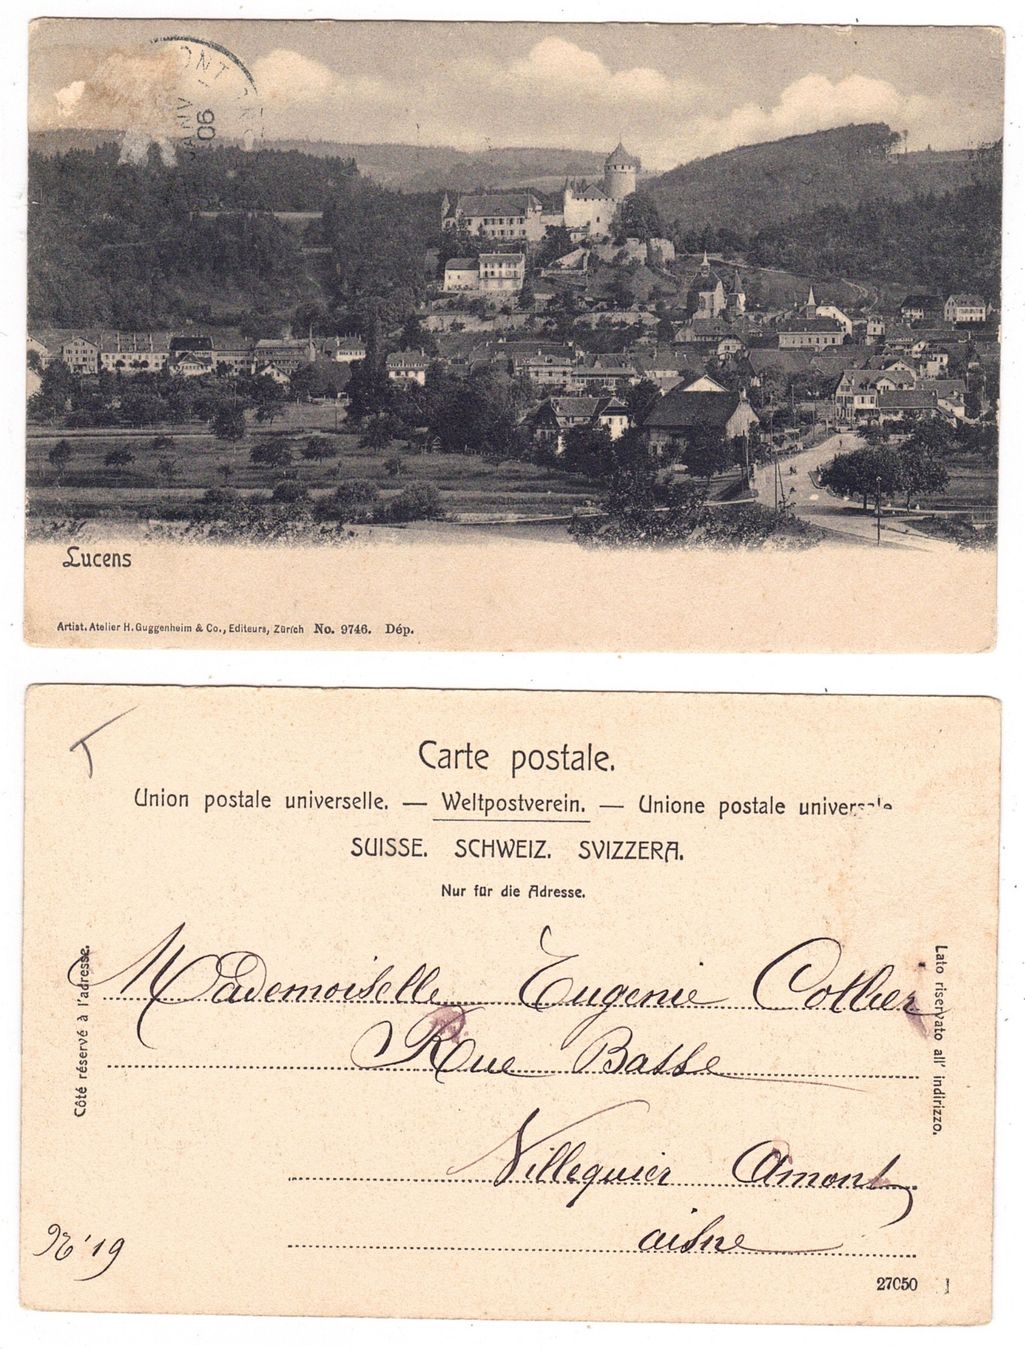 ONT
JANV
06
Lucens
Artist. Atelier H. Guggenheim & Co., Editeurs, Zürich No. 9746. Dép.
T
Carte postale.
Union postale universelle. — Weltpostverein. — Unione postale universale
SUISSE. SCHWEIZ. SVIZZERA.
Nur für die Adresse.
Côté réservé à l'adresse.
Lato riservato all' indirizzo.
Mademoiselle Eugenie Collier
Rue Basse
Villequier Aumont
aisne
N° 19
27050